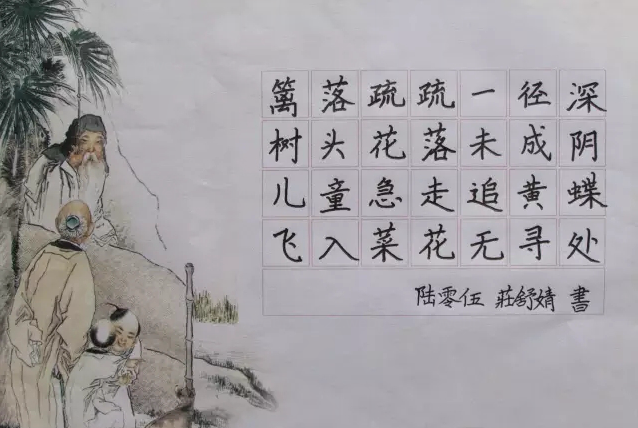 篱落疏疏一径深
树头花落未成阴
儿童急走追黄蝶
飞入菜花无寻处
陆零伍 莊舒婧 書